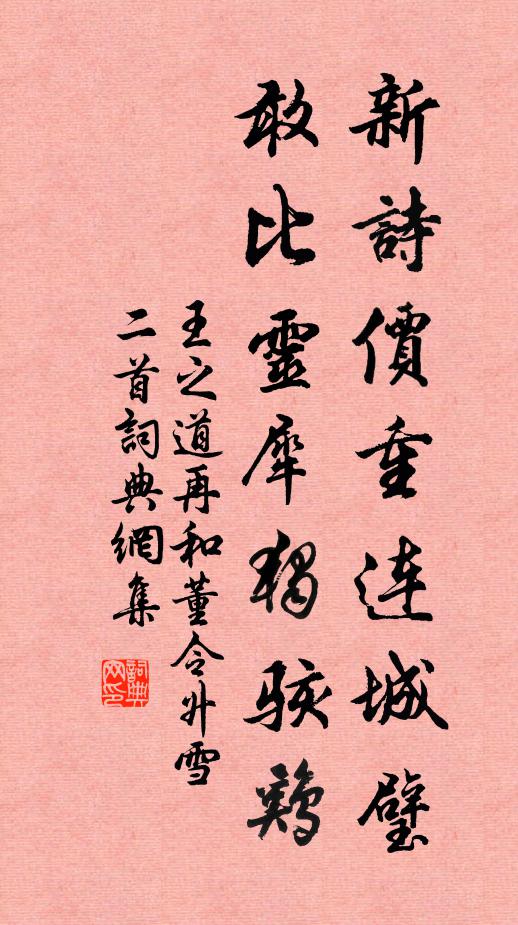 新詩價重連城璧
敢比靈犀獨駭鷄
王之道再和董令升雪
二首詞典網集
詞典
网印